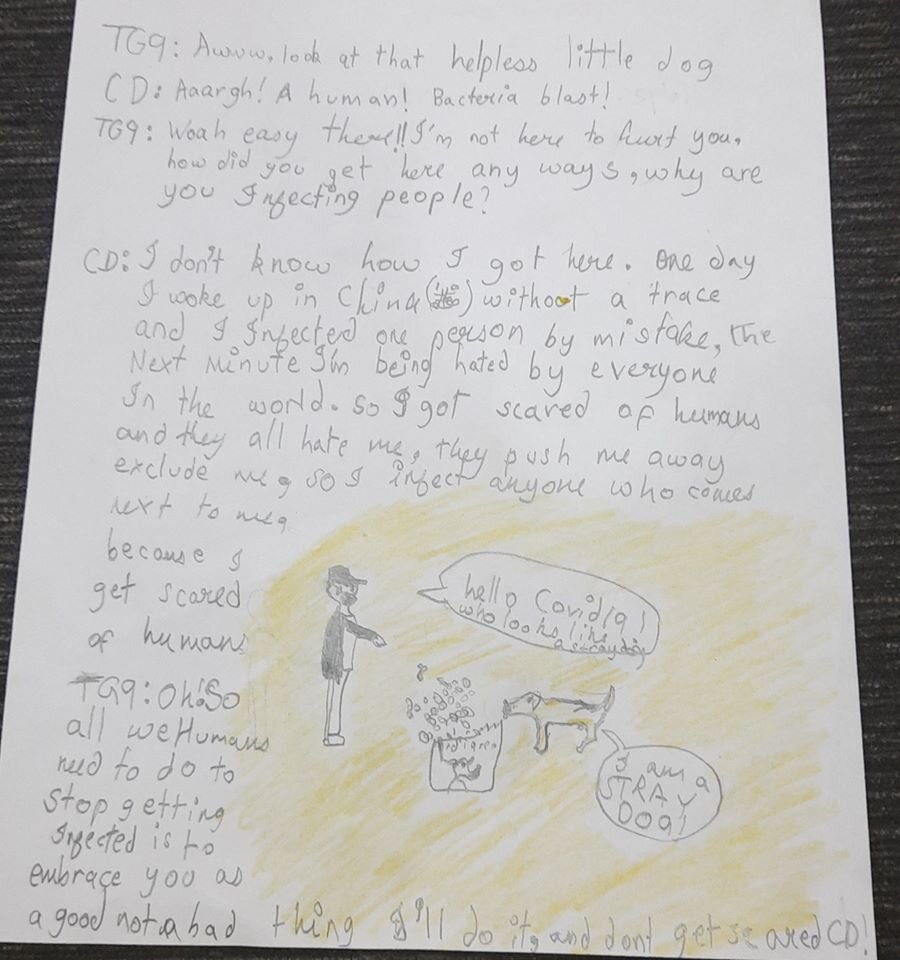 TG9: Awww, look at that helpless little dog
CD: Aaargh! A human! Bacteria blast!
TG9: Woah easy there!! I'm not here to hurt you,
how did you get here any ways, why are
you Infecting people?
CD: I don't know how I got here. One day
I woke up in China () without a trace
and I Infected one person by mistake, The
Next Minute I'm being hated by everyone
In the world. so I got scared of humans
and they all hate me, they push me away
exclude me, so I infect anyone who comes
next to me,
because I
get scared
of humans
TG9: Oh! So
all we Humans
need to do to
stop getting
Infected is to
embrace you as
a good not a bad thing I'll do it, and dont get scared CD!
hello Covid19!
who looks like
a stray dog
I am a
STRAY
DOG!